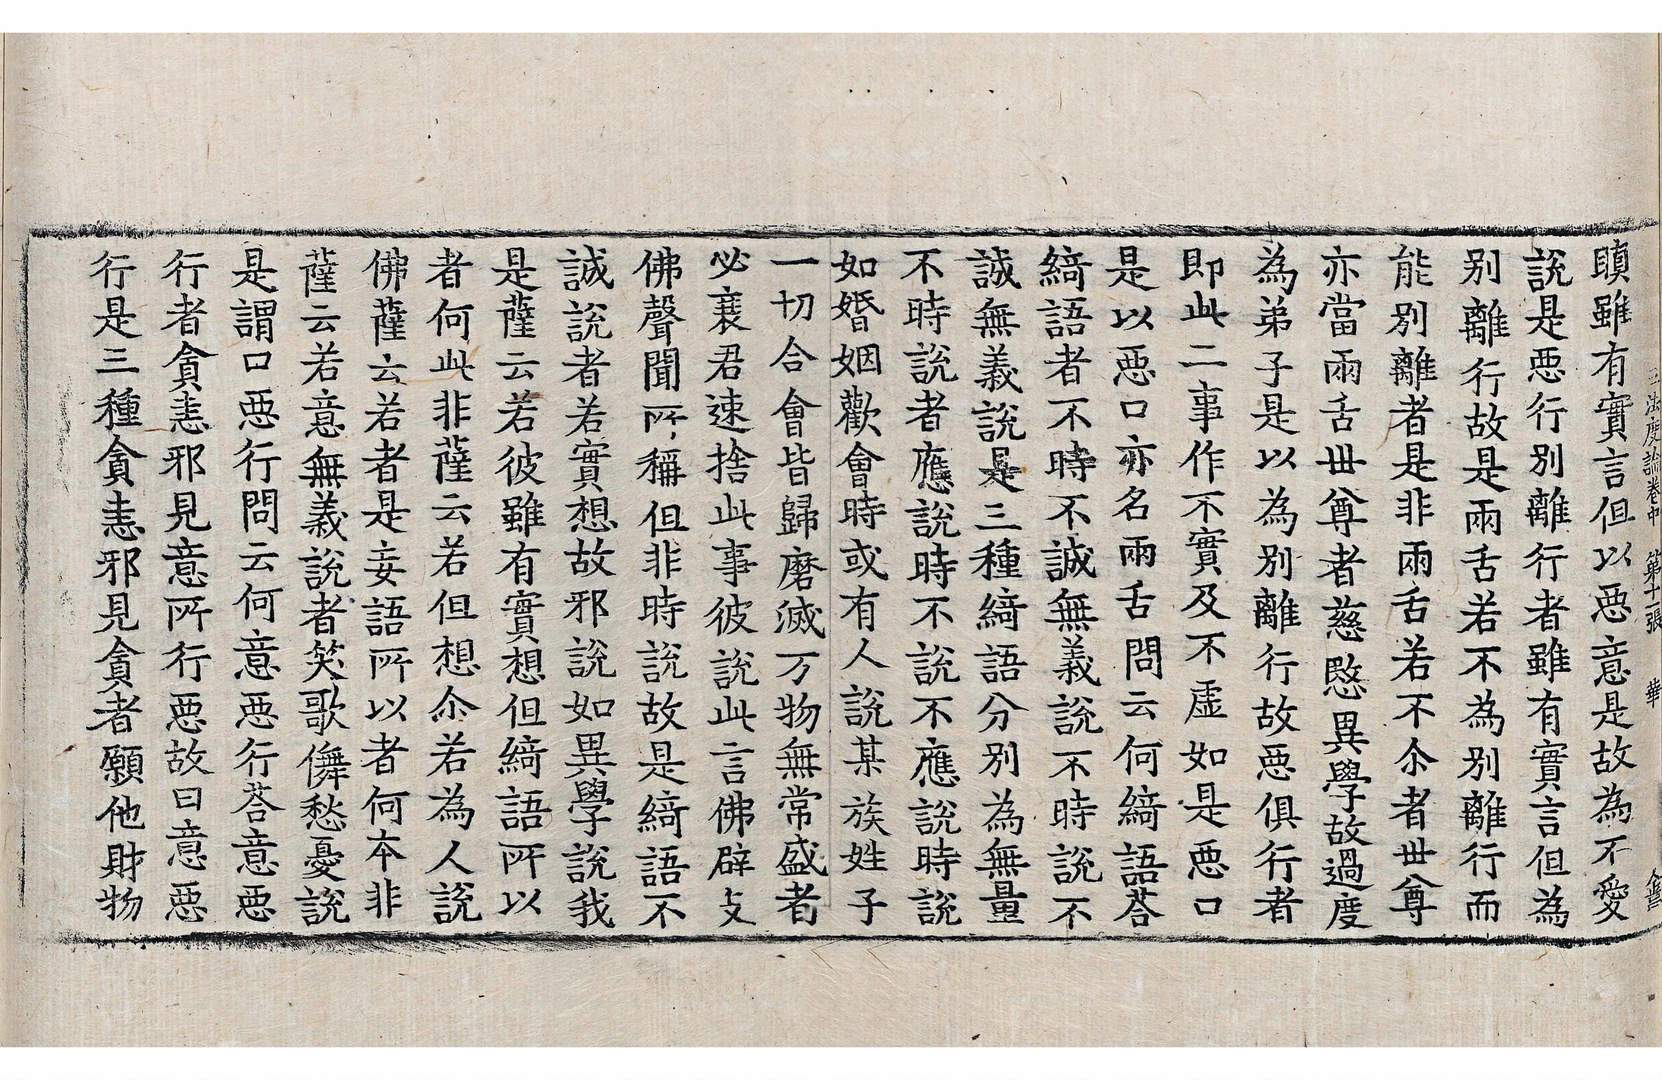 三法度論卷中 第十一張 華
瞋雖有實言但以惡意是故為不愛
說是惡行別離行者雖有實言但為
別離行故是兩舌若不為別離行而
能別離者是非兩舌若不尒者世尊
亦當兩舌世尊者慈愍異學故過度
為弟子是以為別離行故惡俱行者
即此二事作不實及不虛如是惡口
是以惡口亦名兩舌問云何綺語荅
綺語者不時不誠無義說不時說不
誠無義說是三種綺語分別為無量
不時說者應說時不說不應說時說
如婚姻歡會時或有人說某族姓子
一切合會皆歸磨滅万物無常盛者
必衰君速捨此事彼說此言佛辟支
佛聲聞所稱但非時說故是綺語不
誠說者若實想故邪說如異學說我
是薩云若彼雖有實想但綺語所以
者何此非薩云若但想尒若為人說
佛薩云若者是妄語所以者何本非
薩云若意無義說者笑歌儛愁憂說
是謂口惡行問云何意惡行荅意惡
行者貪恚邪見意所行惡故曰意惡
行是三種貪恚邪見貪者願他財物